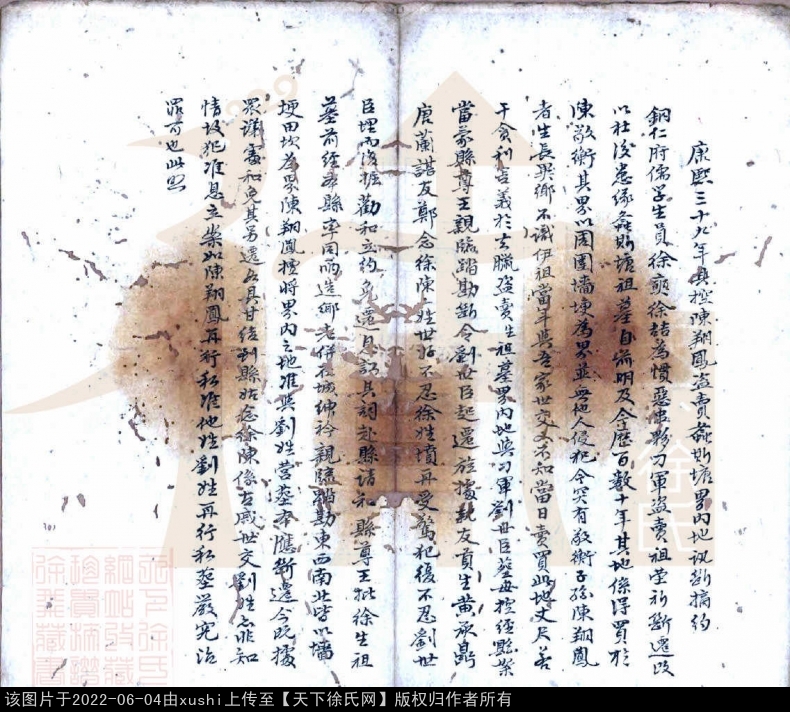 康熙三十九年具控陳翔鳳盜賣螽斯塘界内地訊斷摘約
銅仁府儒學生員徐奭徐喆為慣惡串夥刁軍盜賣祖塋祈斷遷改
以杜後患緣螽斯塘祖墓自前明及今歷百數十年其地係得買於
陳敬衡其界以周圍墻埂為界並無他人侵犯今突有敬衡子孫陳翔鳳
者生長異鄉不識伊祖當年與吾家世交又不知當日賣買此地丈尺若
干貪利忘義於去臘盜賣生祖墓界内地與刁軍劉世臣塟母控經縣案
當蒙縣尊王親臨踏勘斷令劉世臣起遷旋據親友貢生黃承鼎
唐蘭諶友鄭念徐陳二姓世好不忍徐姓墳再受驚犯復不忍劉世
臣埋而復掘勸和立約免遷具詞赴縣請和縣尊王批徐生祖
墓前經本縣牢同兩造鄉老併在城紳衿親臨踏勘東西南北皆以墻
埂田坎為界陳翔鳳擅將界内之地准與劉姓營塟本應斷遷今既據
眾議處和免其另遷各具甘結到縣姑念徐陳係友戚世交劉姓亦非知
情故犯准息立案如陳翔鳳再行私准他姓劉姓再行私塟嚴究治
罪可也此照
徐氏
该图片于2022-06-04由xushi上传至【天下徐氏网】版权归作者所有